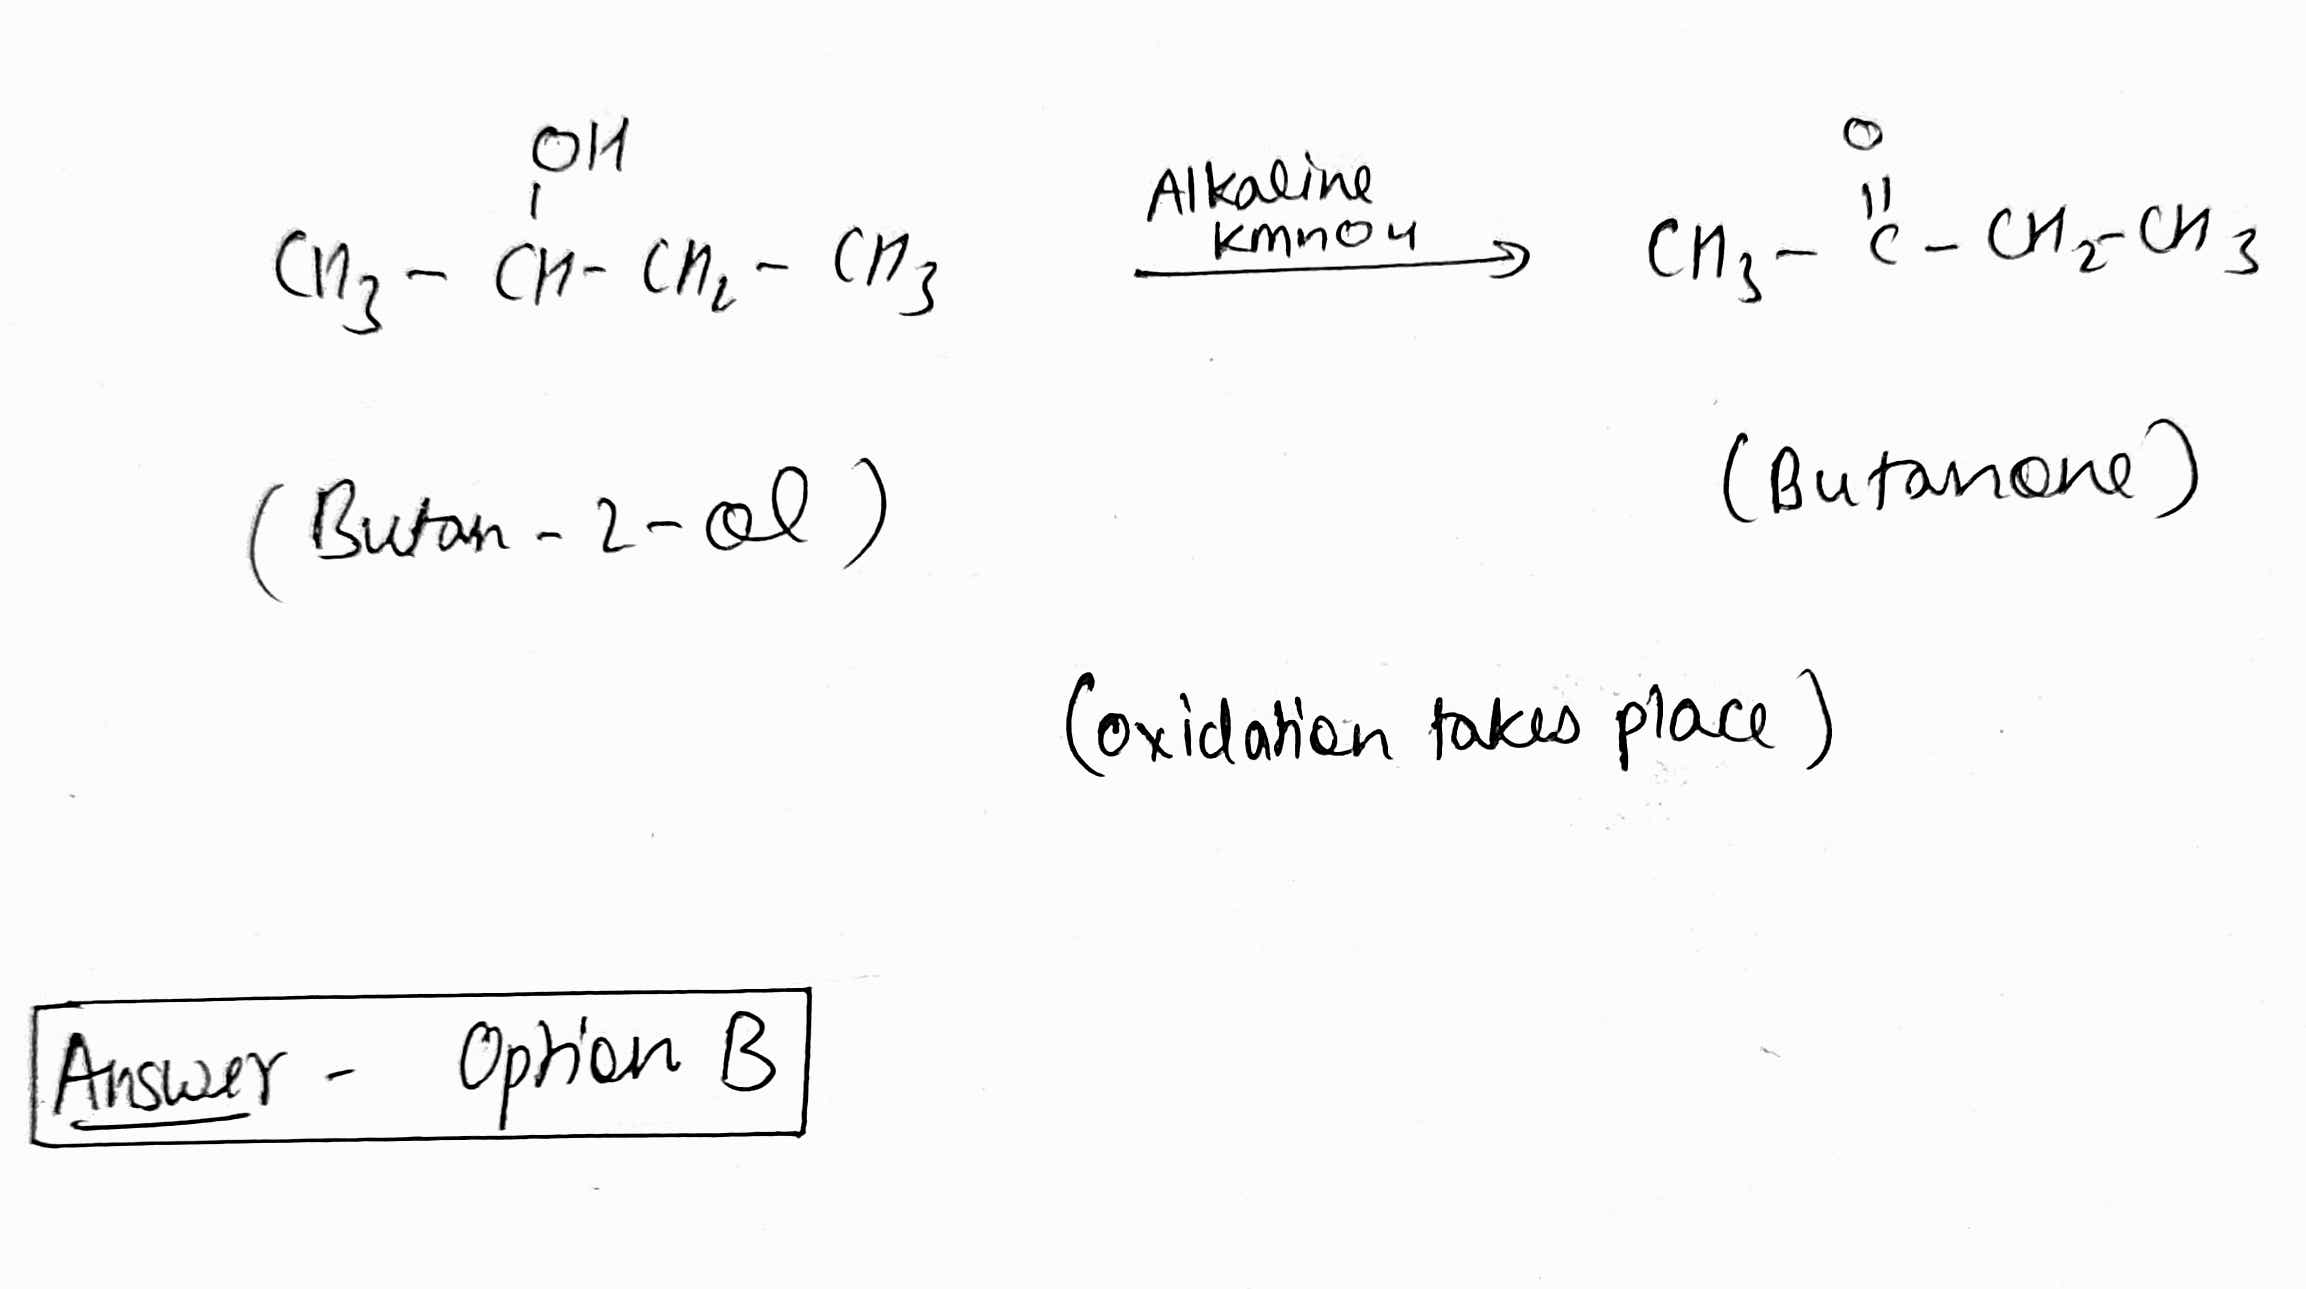 OH
CH3 - CH - CH2 - CH3
Alkaline
KMnO4
O
CH3 - C - CH2 - CH3
(Butan - 2 - ol)
(Butanone)
(oxidation takes place)
Answer - Option B